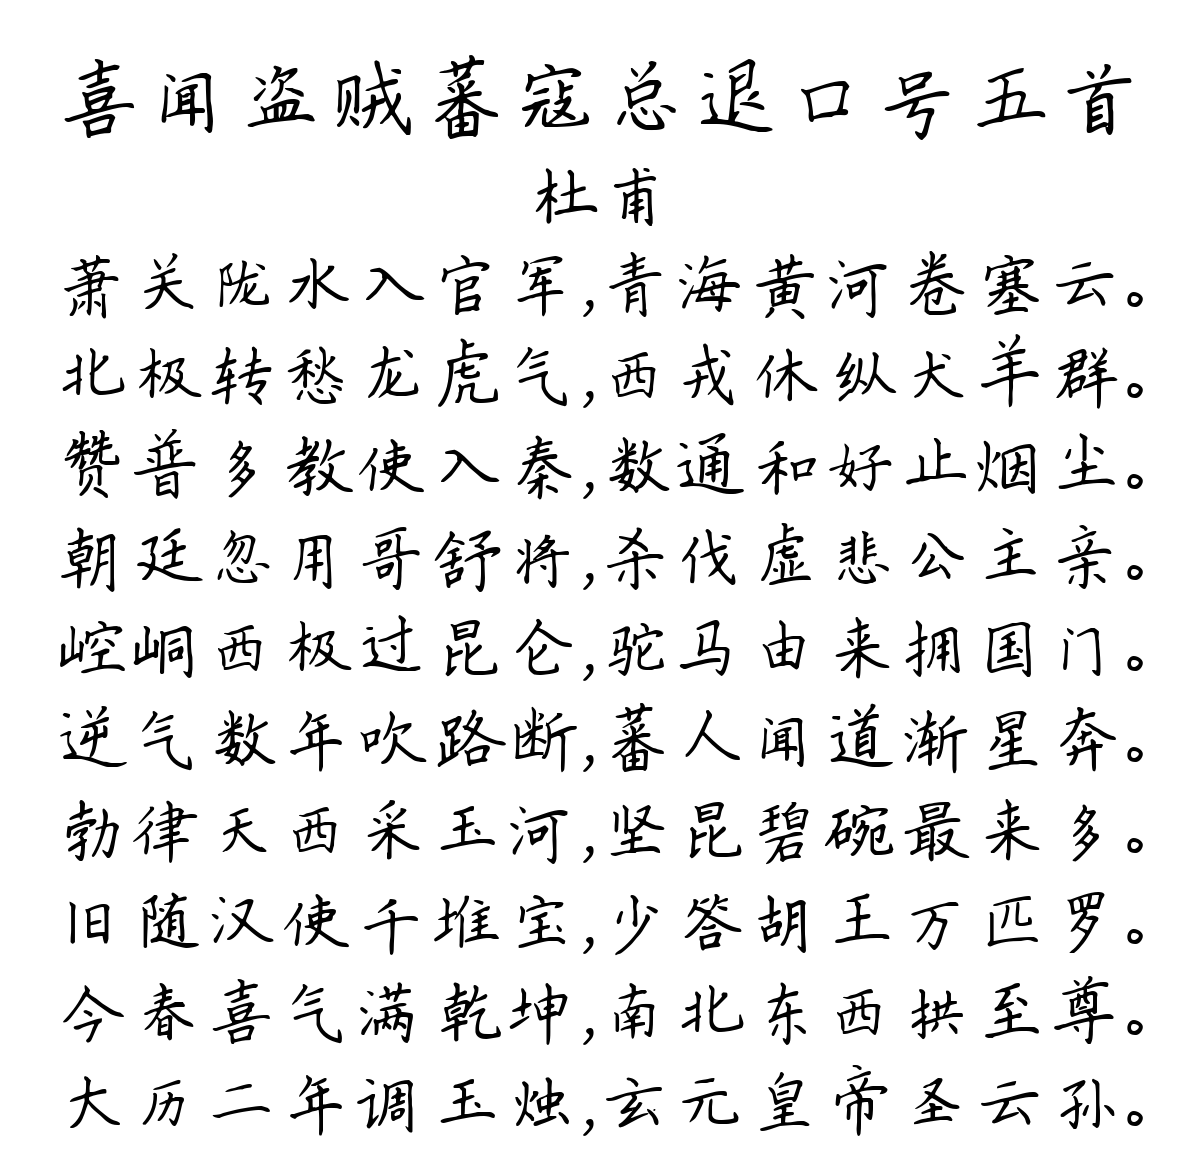 喜闻盗贼蕃寇总退口号五首
杜甫
萧关陇水入官军,青海黄河卷塞云。
北极转愁龙虎气,西戎休纵犬羊群。
赞普多教使入秦,数通和好止烟尘。
朝廷忽用哥舒将,杀伐虚悲公主亲。
崆峒西极过昆仑,驼马由来拥国门。
逆气数年吹路断,蕃人闻道渐星奔。
勃律天西采玉河,坚昆碧碗最来多。
旧随汉使千堆宝,少答胡王万匹罗。
今春喜气满乾坤,南北东西拱至尊。
大历二年调玉烛,玄元皇帝圣云孙。